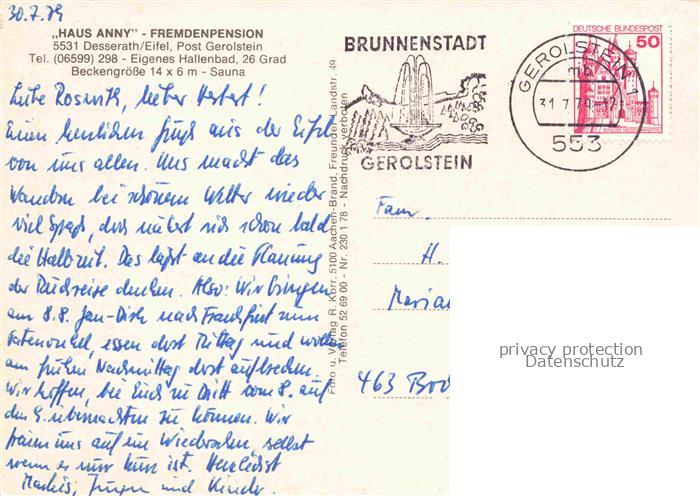 30.7.79
„HAUS ANNY" - FREMDENPENSION
5531 Desserath/Eifel, Post Gerolstein
Tel. (06599) 298 - Eigenes Hallenbad, 26 Grad
Beckengröße 14 x 6 m - Sauna
Liebe Roswith, lieber Herbert!
Einen herzlichen Gruß aus der Eifel
von uns allen. Uns macht das
Wandern bei schönem Wetter wieder
viel Spaß, doch nähert sich schon bald
die Halbzeit. Das läßt an die Planung
der Rückreise denken. Also: Wir bringen
am 8.8. Jan-Dirk nach Frankfurt zum
Patenonkel, essen dort Mittag und wollen
am frühen Nachmittag dort aufbrechen.
Wir hoffen, bei Euch zu Dritt vom 8. auf
den 9. übernachten zu können. Wir
freuen uns auf ein Wiedersehen, selbst
wenn es nur kurz ist. Herzlichst
Jürgen und Kinder.
Foto u. Verlag R. Korr, 5100 Aachen-Brand, Freunder Landstr. 49
Telefon 52 69 00 - Nr. 230 1 78 - Nachdruck verboten
BRUNNENSTADT
GEROLSTEIN
GEROLSTEIN 1
mb
31.7.79-12
553
DEUTSCHE BUNDESPOST
50
Fam.
H.
Marian
463 Boc
privacy protection
Datenschutz